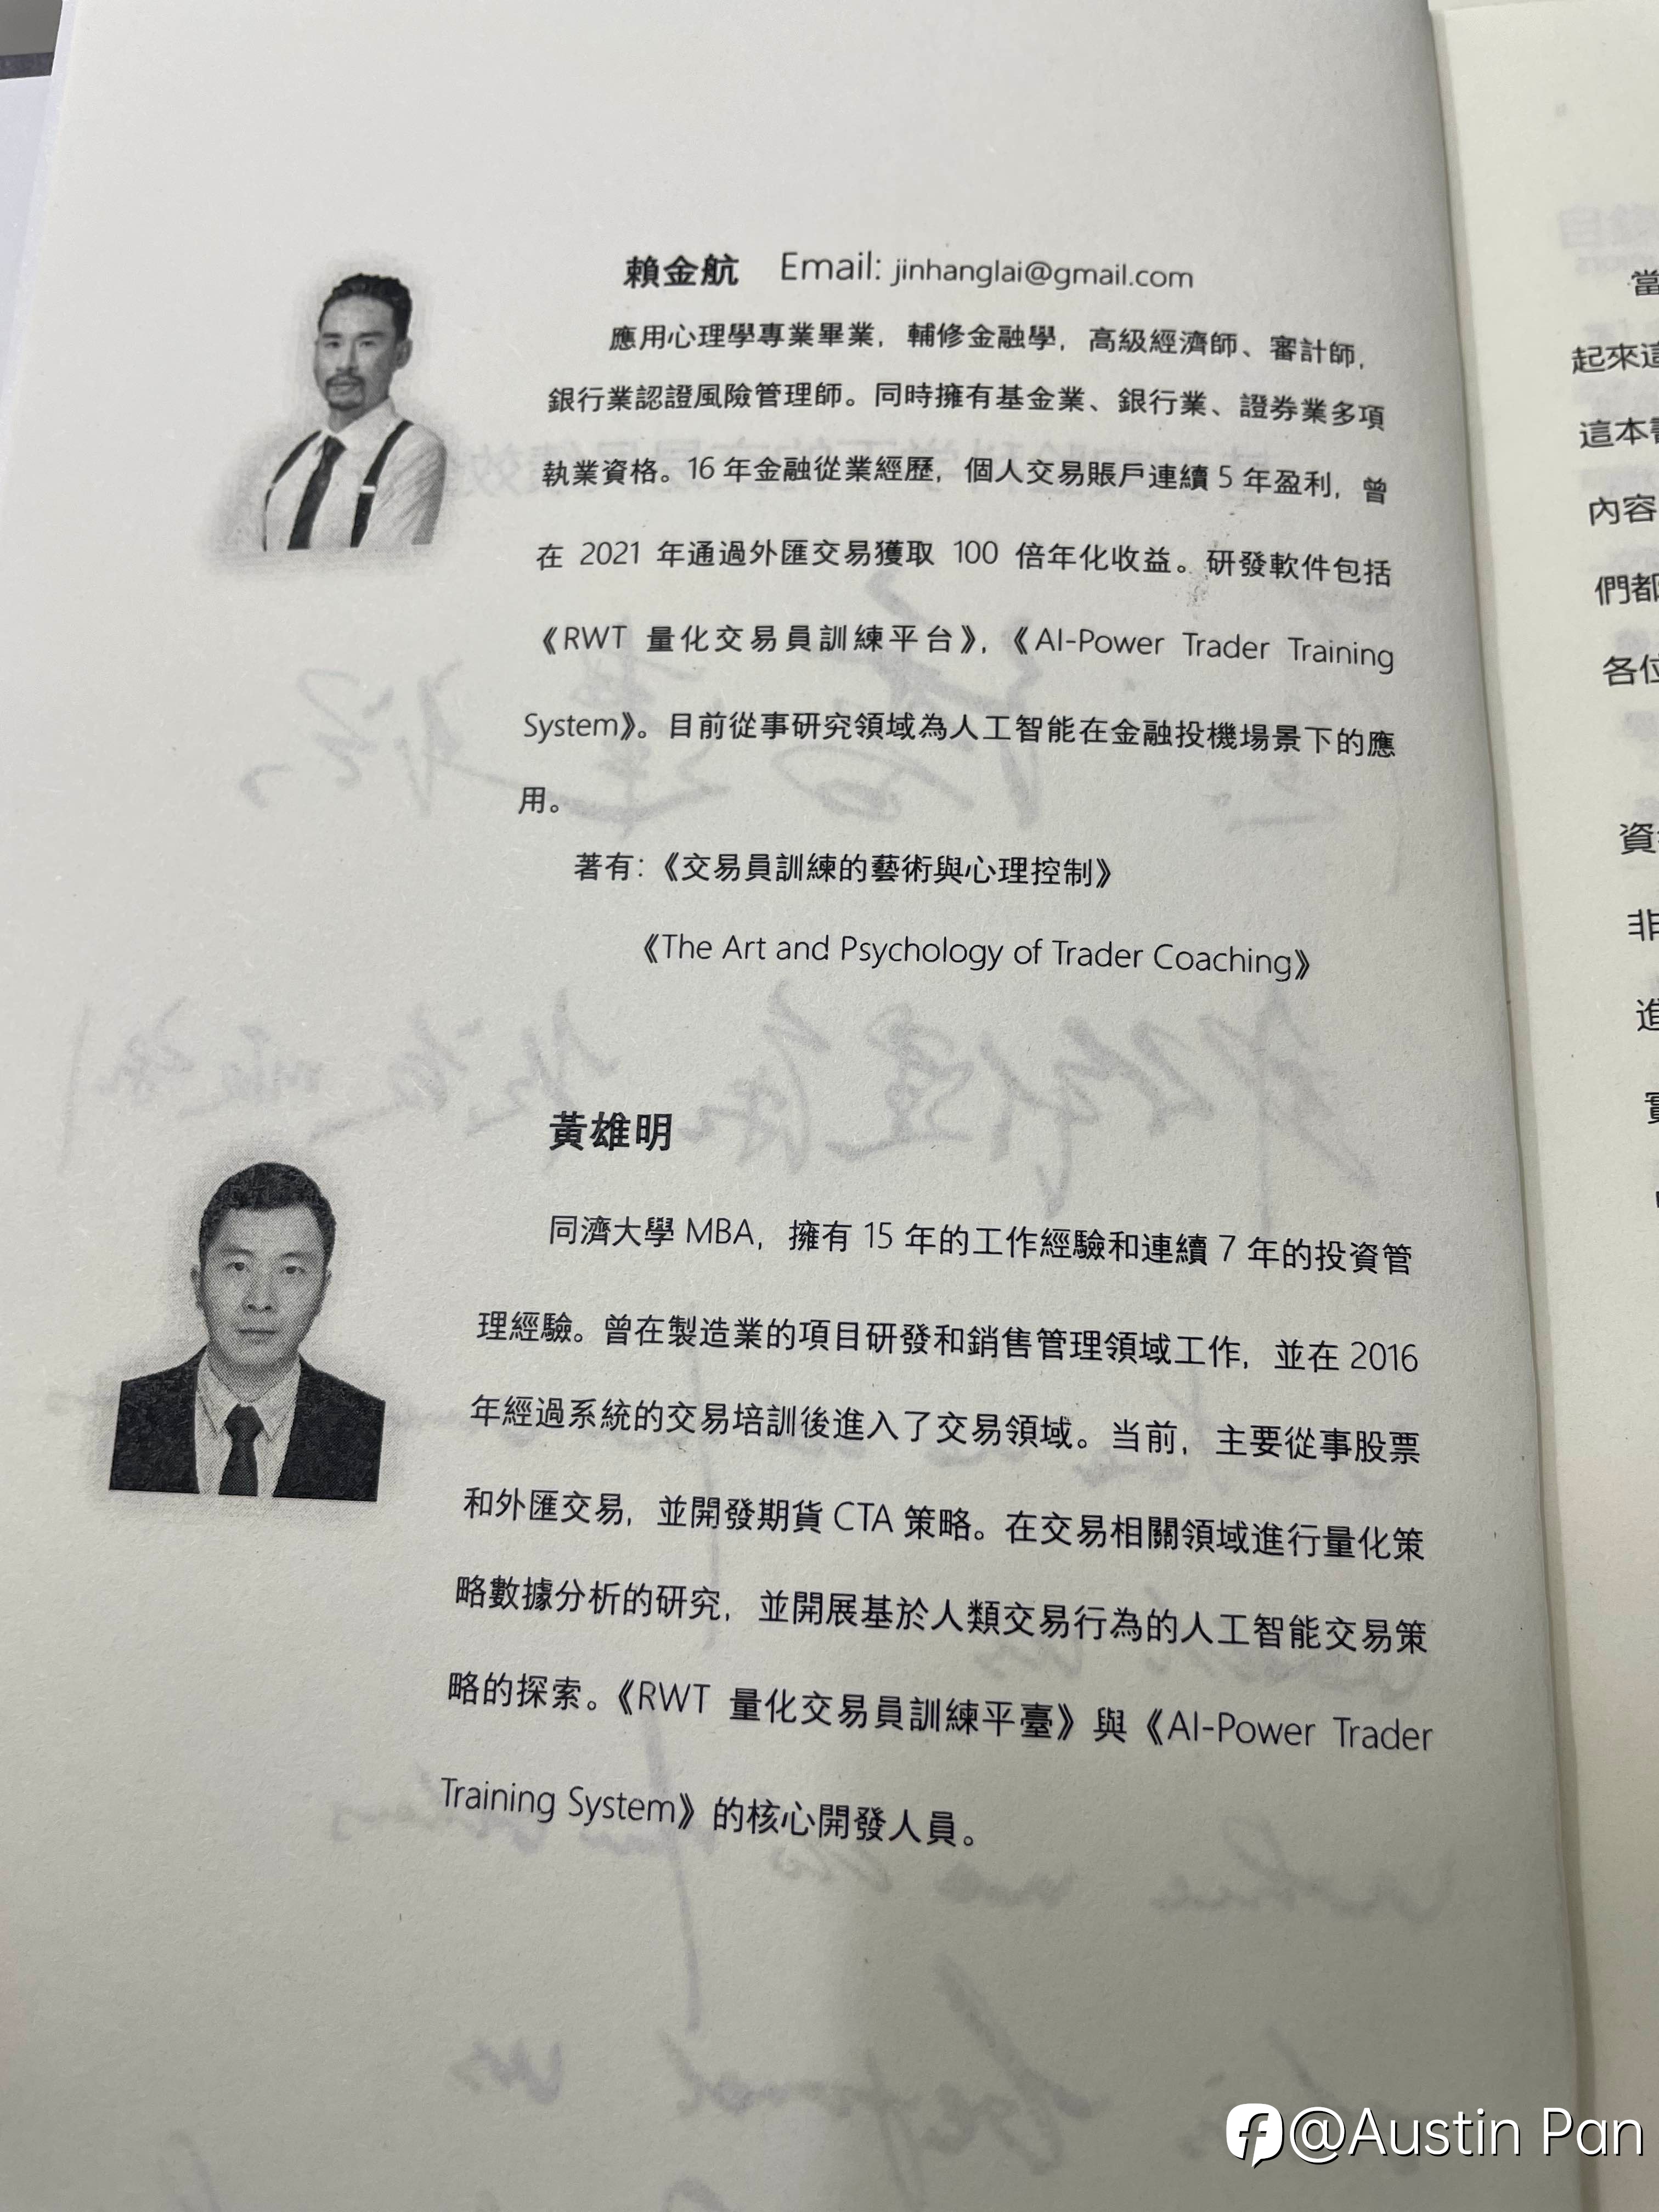 賴金航 Email: jinhanglai@gmail.com
應用心理學專業畢業，輔修金融學，高級經濟師、審計師，
銀行業認證風險管理師。同時擁有基金業、銀行業、證券業多項
執業資格。16 年金融從業經歷，個人交易賬戶連續 5 年盈利，曾
在 2021 年通過外匯交易獲取 100 倍年化收益。研發軟件包括
《RWT 量化交易員訓練平台》，《AI-Power Trader Training
System》。目前從事研究領域為人工智能在金融投機場景下的應
用。
著有：《交易員訓練的藝術與心理控制》
《The Art and Psychology of Trader Coaching》
黃雄明
同濟大學 MBA，擁有 15 年的工作經驗和連續 7 年的投資管
理經驗。曾在製造業的項目研發和銷售管理領域工作，並在 2016
年經過系統的交易培訓後進入了交易領域。当前，主要從事股票
和外匯交易，並開發期貨 CTA 策略。在交易相關領域進行量化策
略數據分析的研究，並開展基於人類交易行為的人工智能交易策
略的探索。《RWT 量化交易員訓練平臺》與《AI-Power Trader
Training System》的核心開發人員。
當
起來這
這本書
內容
們都
各位
資
非
進
實
@Austin Pan